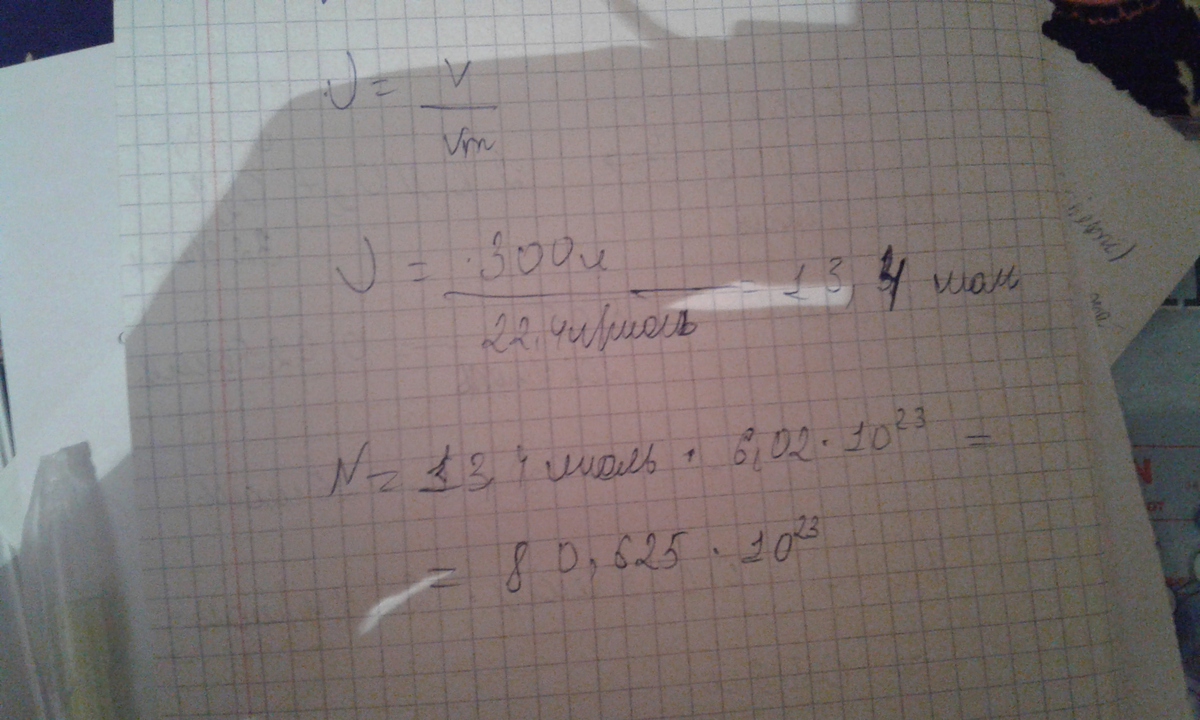 ν = V
Vm
ν = 300 л = 13,4 моль
22,4 л/моль
N = 13,4 моль · 6,02 · 10²³ =
= 80,625 · 10²³